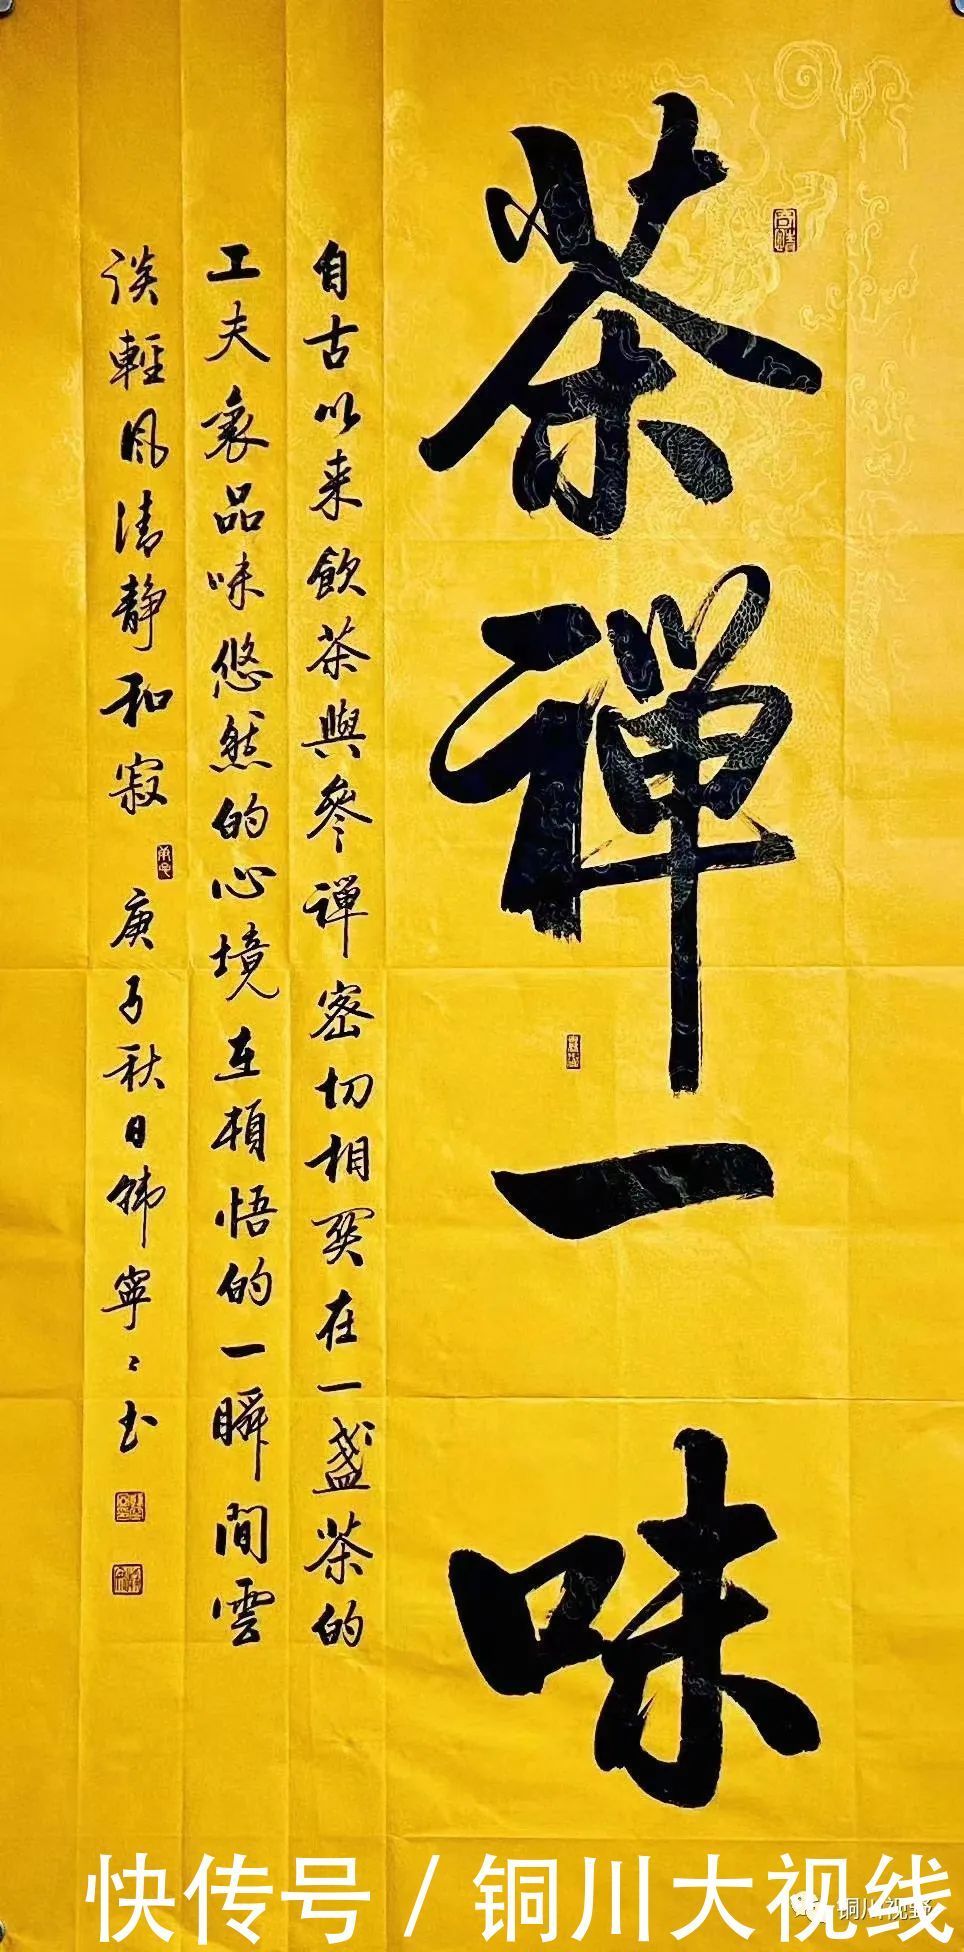 茶禅一味
自古以来飲茶與參禅密切相関在一盏茶的
工夫裏品味悠然的心境在頓悟的一瞬間雲
淡輕风清静和寂
庚子秋日韩寧寧书
快传号/铜川大视线
铜川视野